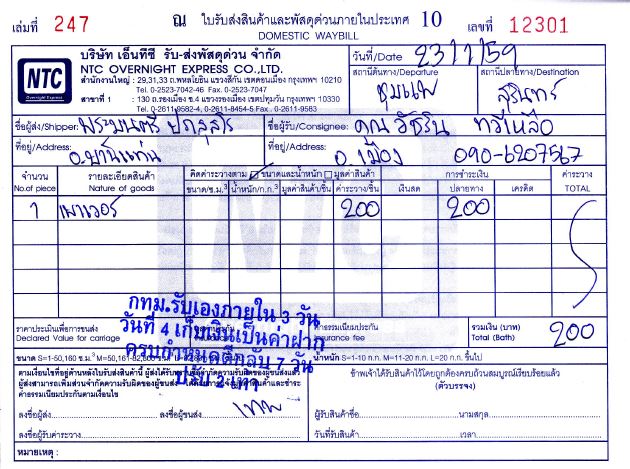 เล่มที่ 247 ณ ใบรับส่งสินค้าและพัสดุด่วนภายในประเทศ 10 เลขที่ 12301
DOMESTIC WAYBILL
NTC
Overnight Express
บริษัท เอ็นทีซี รับ-ส่งพัสดุด่วน จำกัด
NTC OVERNIGHT EXPRESS CO.,LTD.
สำนักงานใหญ่ : 29,31,33 ถ.พหลโยธิน แขวงสีกัน เขตดอนเมือง กรุงเทพฯ 10210
Tel. 0-2523-7042-46 Fax. 0-2523-7047
สาขาที่ 1 : 130 ถ.รองเมือง ข.4 แขวงรองเมือง เขตปทุมวัน กรุงเทพฯ 10330
Tel. 0-2611-9582-4, 0-2611-8454-5 Fax. 0-2611-9583
วันที่/Date 23/1/59
สถานีต้นทาง/Departure ชุมแพ
สถานีปลายทาง/Destination สุรินทร์
ชื่อผู้ส่ง/Shipper: พระมนตรี
ชื่อผู้รับ/Consignee: คุณ วัชริน ทวีเหลือ
ที่อยู่/Address: อ.บ้านแท่น
ที่อยู่/Address: อ.เมือง 090-6207567
จำนวน รายละเอียดสินค้า คิดค่าระวางตาม ขนาดและน้ำหนัก มูลค่าสินค้า การชำระเงิน ค่าระวาง
No.of piece Nature of goods ขนาด/ซ.ม.³ น้ำหนัก/ก.ก. มูลค่าสินค้า/ชิ้น ค่าระวาง/ชิ้น เงินสด ปลายทาง เครดิต TOTAL
1 เพาเวอร์ 200 200
กทม.รับเองภายใน 3 วัน
วันที่ 4 เก็บเงินเป็นค่าฝาก
ครบกำหนดตีกลับ 7 วัน
ปรับ 2 เท่า
ราคาประเมินเพื่อการขนส่ง ค่าธรรมเนียมประกัน รวมเงิน (บาท)
Declared Value for carriage Insurance fee Total (Bath) 200
ขนาด S=1-50,160 ซ.ม.³ น้ำหนัก S=1-10 ก.ก. M=11-20 ก.ก. L=20 ก.ก. ขึ้นไป
ตามเงื่อนไขที่อยู่ด้านหลังใบรับส่งสินค้านี้
ค่าธรรมเนียมประกันตามเงื่อนไข
ลงชื่อผู้ส่ง ลงชื่อผู้ขนส่ง
ลงชื่อผู้รับค่าระวาง
ข้าพเจ้าได้รับสินค้าไว้โดยถูกต้องครบถ้วนสมบูรณ์เรียบร้อยแล้ว
(ตัวบรรจง)
ผู้รับสินค้าชื่อ นามสกุล
วันที่รับสินค้า เวลา
หมายเหตุ :